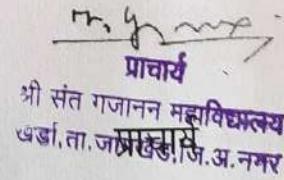 प्राचार्य
श्री संत गजानन महाविद्यालय
खर्डा, ता. जामखेड, जि. अ. नगर
प्राचार्य